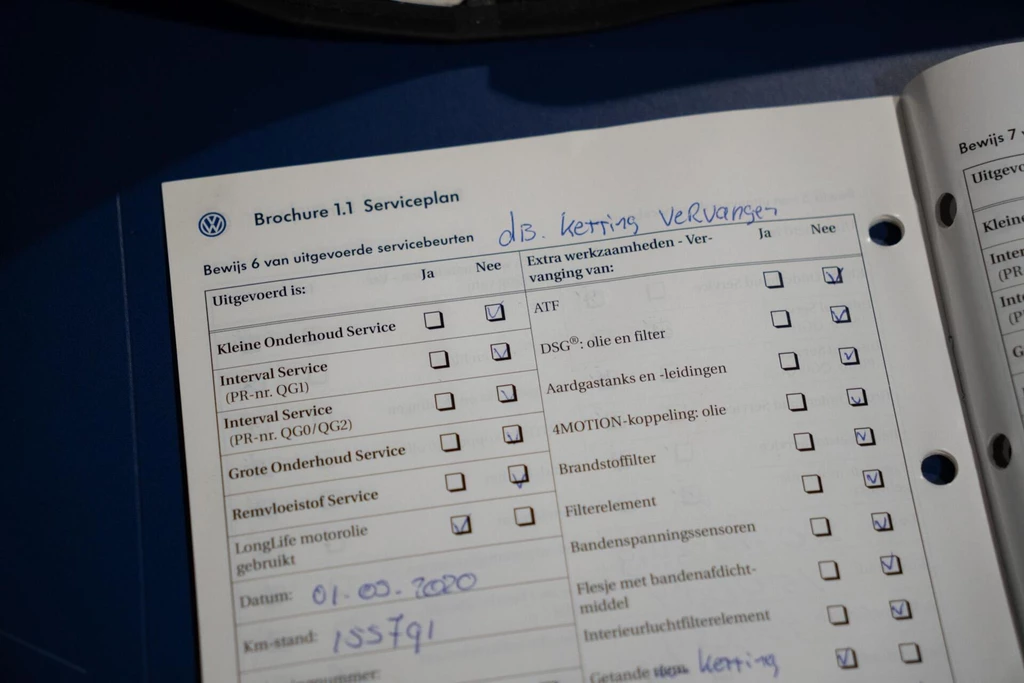 Brochure 1.1 Serviceplan
Bewijs 6 van uitgevoerde servicebeurten
dis. ketting vervangen
Uitgevoerd is:
Ja
Nee
Kleine Onderhoud Service
Interval Service
(PR-nr. QG1)
Interval Service
(PR-nr. QG0/QG2)
Grote Onderhoud Service
Remvloeistof Service
LongLife motorolie
gebruikt
Datum:
Km-stand: 155791
Extra werkzaamheden - Ver-
vanging van:
Ja
Nee
ATF
DSG®: olie en filter
Aardgastanks en -leidingen
4MOTION-koppeling: olie
Brandstoffilter
Filterelement
Bandenspanningssensoren
Flesje met bandenafdicht-
middel
Interieurluchtfilterelement
Getande ketting
Bewijs 7
Uitgevo
Kleine
Inter
(PR-
Inte
(P
G